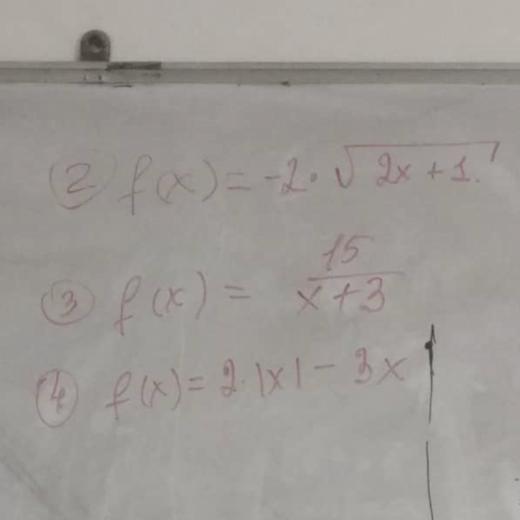 ② f(x) = -2 · √(2x + 1)
③ f(x) = 15/(x + 3)
④ f(x) = 2 · |x| - 3x